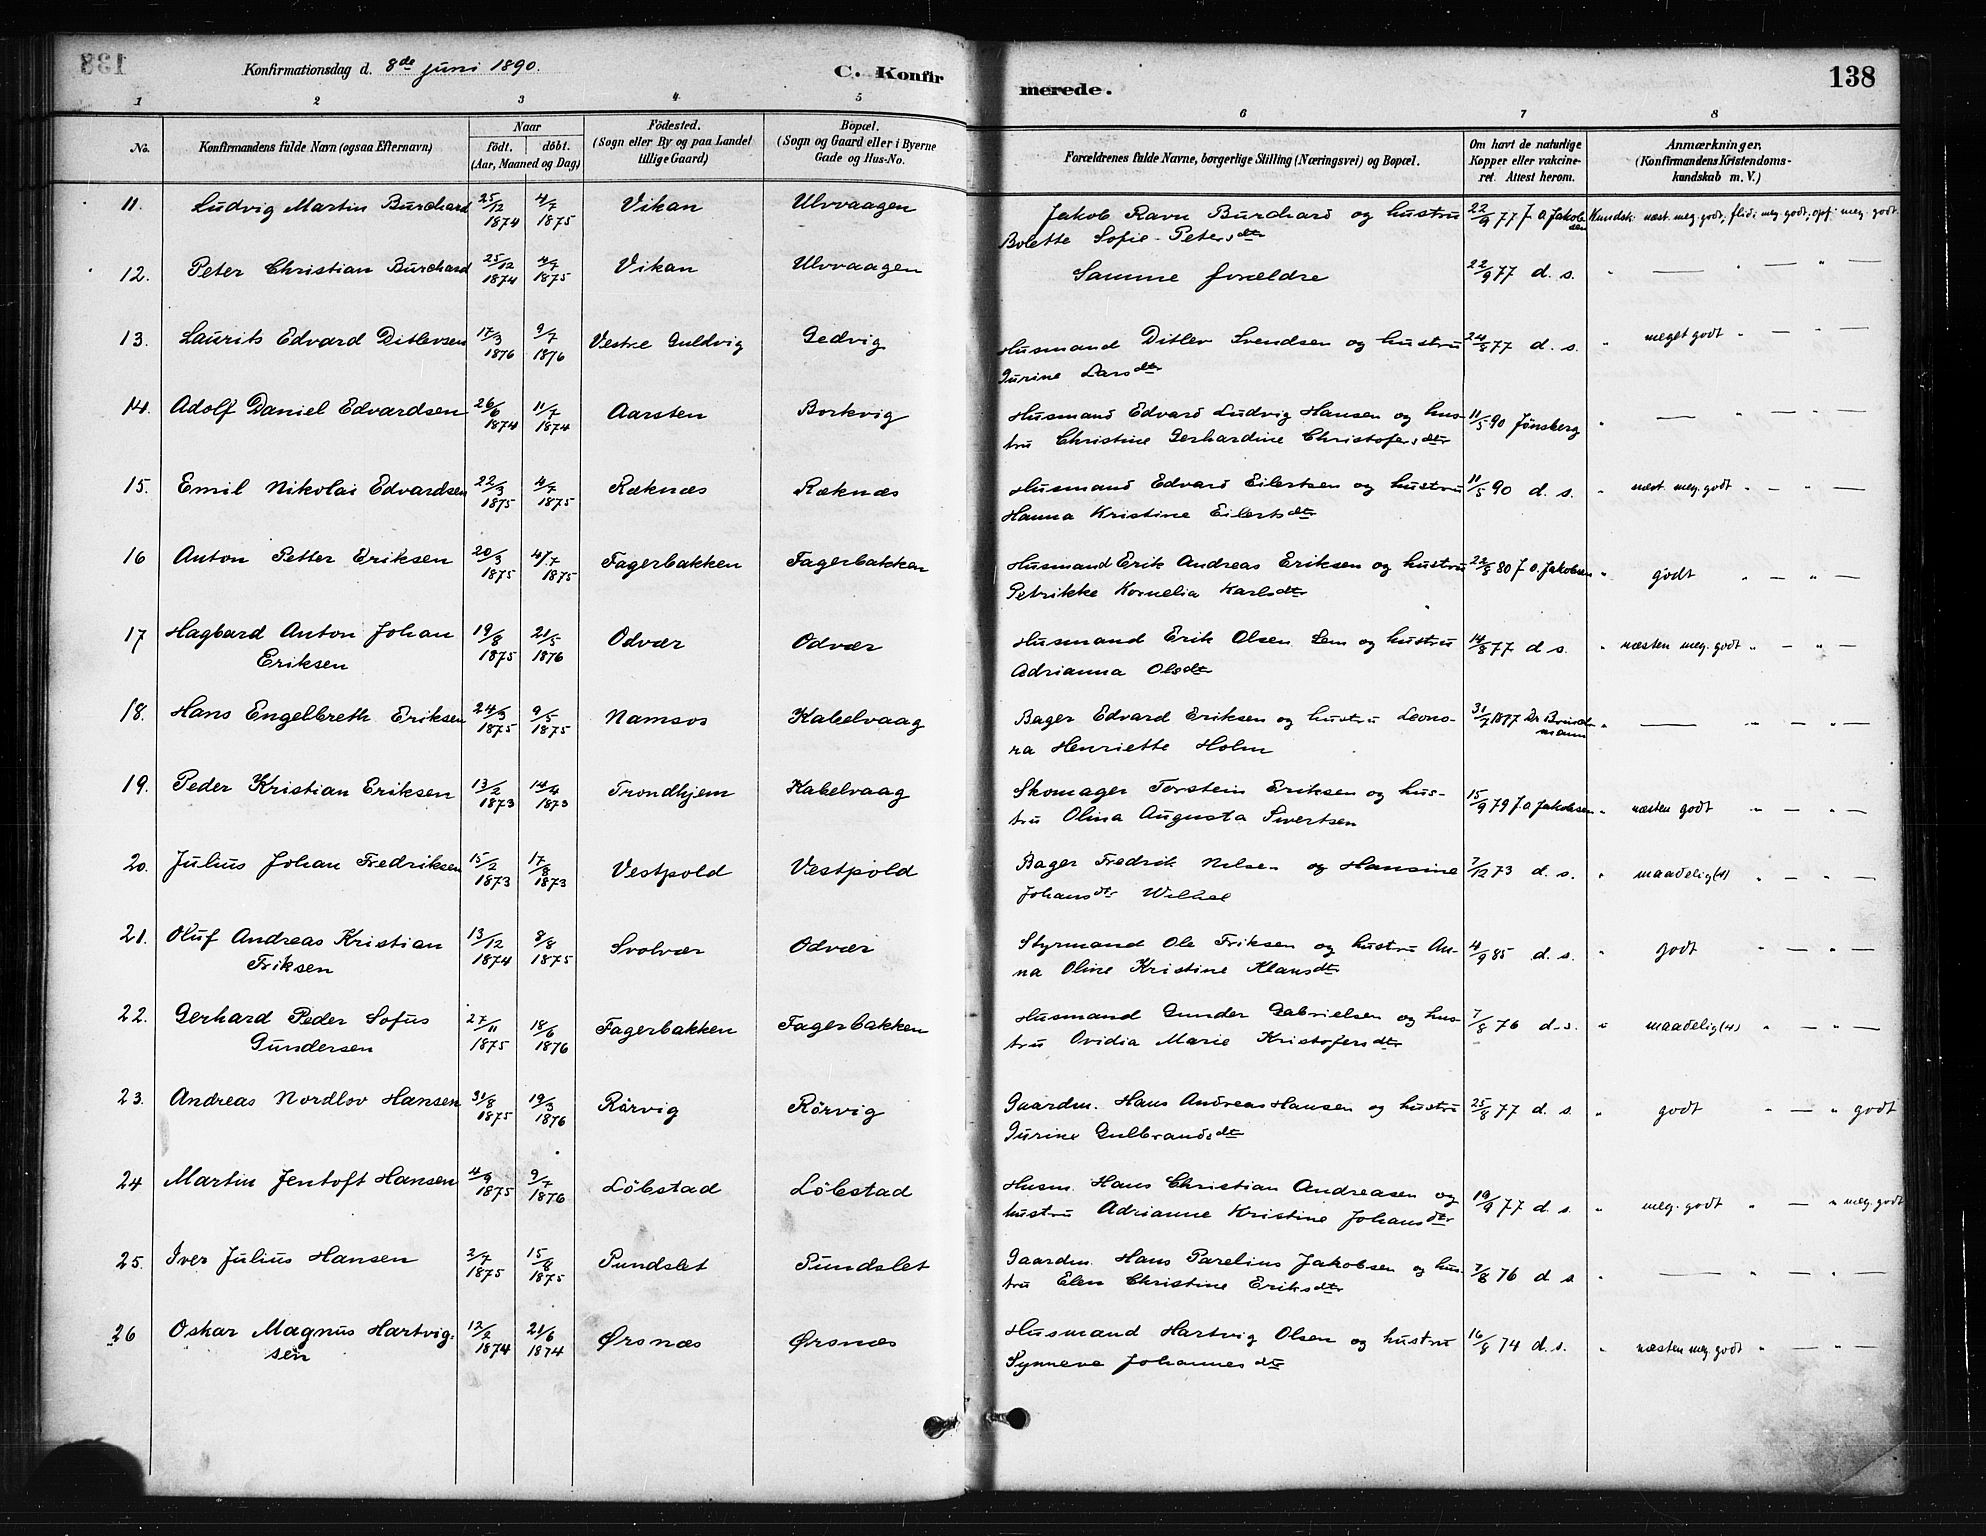 Konfirmationsdag d. 8de juni 1890. C. Konfirmerede. 138
1 2 3 4 5 6 7 8
No. Konfirmandens fulde Navn (ogsaa Efternavn) Naar födt. döbt. (Aar, Maaned og Dag) Födested. (Sogn eller By og paa Landet tillige Gaard) Bopæl. (Sogn og Gaard eller i Byerne Gade og Hus-No. Forældrenes fulde Navne, borgerlige Stilling (Næringsvei) og Bopæl. Om havt de naturlige Kopper eller vakcineret. Attest herom. Anmærkninger. (Konfirmandens Kristendomskundskab m. V.)
11. Ludvig Martin Burchard 25/12 1874 4/7 1875 Vikan Ulvvaagen Jakob Ravn Burchard og hustru 22/9 77 J. A. Jakobsen Kundsk: næst. meg. godt, flid: meg. godt, opf: meg. godt.
Bolette Sofie Petersdtr
12. Peter Christian Burchard 25/12 1874 4/7 1875 Vikan Ulvvaagen Samme forældre 22/9 77 d. s. " — " — " —
13. Laurits Edvard Ditlevsen 17/3 1876 9/7 1876 Vestre Guldvig Gedvig Husmand Ditlev Svendsen og hustru 24/8 77 d. s. " meget godt " — " —
Gurine Larsdtr
14. Adolf Daniel Edvardsen 26/6 1874 11/7 1874 Aarsten Borkvig Husmand Edvard Ludvig Hansen og hus- 11/5 90 Jönsberg " — " — " —
tru Christine Gerhardine Christofersdtr
15. Emil Nikolai Edvardsen 22/3 1875 4/7 1875 Ræknæs Ræknæs Husmand Edvard Eilertsen og hustru 11/5 90 d. s. " næst. meg. godt " — " —
Hanna Kristine Eilertsdtr
16 Anton Petter Eriksen 20/3 1875 4/7 1875 Fagerbakken Fagerbakken Husmand Erik Andreas Eriksen og hustru 23/8 80 J. A. Jakobsen " godt " — " —
Petrikke Kornelia Karlsdtr
17 Hagbard Anton Johan 19/8 1875 21/5 1876 Odvær Odvær Husmand Erik Olsen Lem og hustru 14/8 77 d s. " næsten meg. godt " — " —
Eriksen Adrianna Olsdtr
18. Hans Engelbreth Eriksen 24/3 1875 9/5 1875 Namsos Kabelvaag Bager Edvard Eriksen og hustru Leono- 31/7 1877 Dr " — " — " —
ra Henriette Holm
19. Peder Kristian Eriksen 13/2 1873 14/4 1873 Trondhjem Kabelvaag Skomager Torstein Eriksen og hus- 15/9 79 J. A. Jakobsen " næsten godt " — " —
tru Olina Augusta Sivertsen
20. Julius Johan Fredriksen 15/2 1873 17/8 1873 Vestpold Vestpold Bager Fredrik Nilsen og Hansine 7/12 73 d. s. " maadelig (4) " — " —
Johansdtr
21. Oluf Andreas Kristian 13/12 1874 8/8 1875 Svolvær Odvær Styrmand Ole Friksen og hustru An- 4/9 85 d. s. " godt " — " —
Friksen na Oline Kristine Klausdtr
22. Gerhard Peder Sofus 27/11 1875 18/6 1876 Fagerbakken Fagerbakken Husmand Gunder Gabrielsen og hus- 7/8 76 d. s. " maadelig (4) " — " —
Gundersen tru Ovidia Marie Kristofersdtr
23. Andreas Nordlov Hansen 31/8 1875 19/3 1876 Rörvig Rörvig Gaardm. Hans Andreas Hansen og hustru 25/8 77 d. s. " godt " — " godt
Gurine Gulbrandsdtr
24 Martin Jentoft Hansen 4/9 1875 9/7 1876 Löbstad Löbstad Husm. Hans Christian Andreasen og 19/9 77 d. s. " meg. godt " — " meg. godt
hustru Adrianne Kristine Johansdtr
25. Iver Julius Hansen 2/7 1875 15/8 1875 Pundslet Pundslet Gaardm. Hans Parelius Jakobsen og hus- 7/8 76 d s. " — " — " —
tru Elen Christine Eriksdtr
26 Oskar Magnus Hartvig- 13/2 1874 21/6 1874 Ørsnæs Ørsnæs Husmand Hartvig Olsen og hustru 16/8 74 d. s. " næsten meg. godt " — " —
sen Synneva Johannesdtr